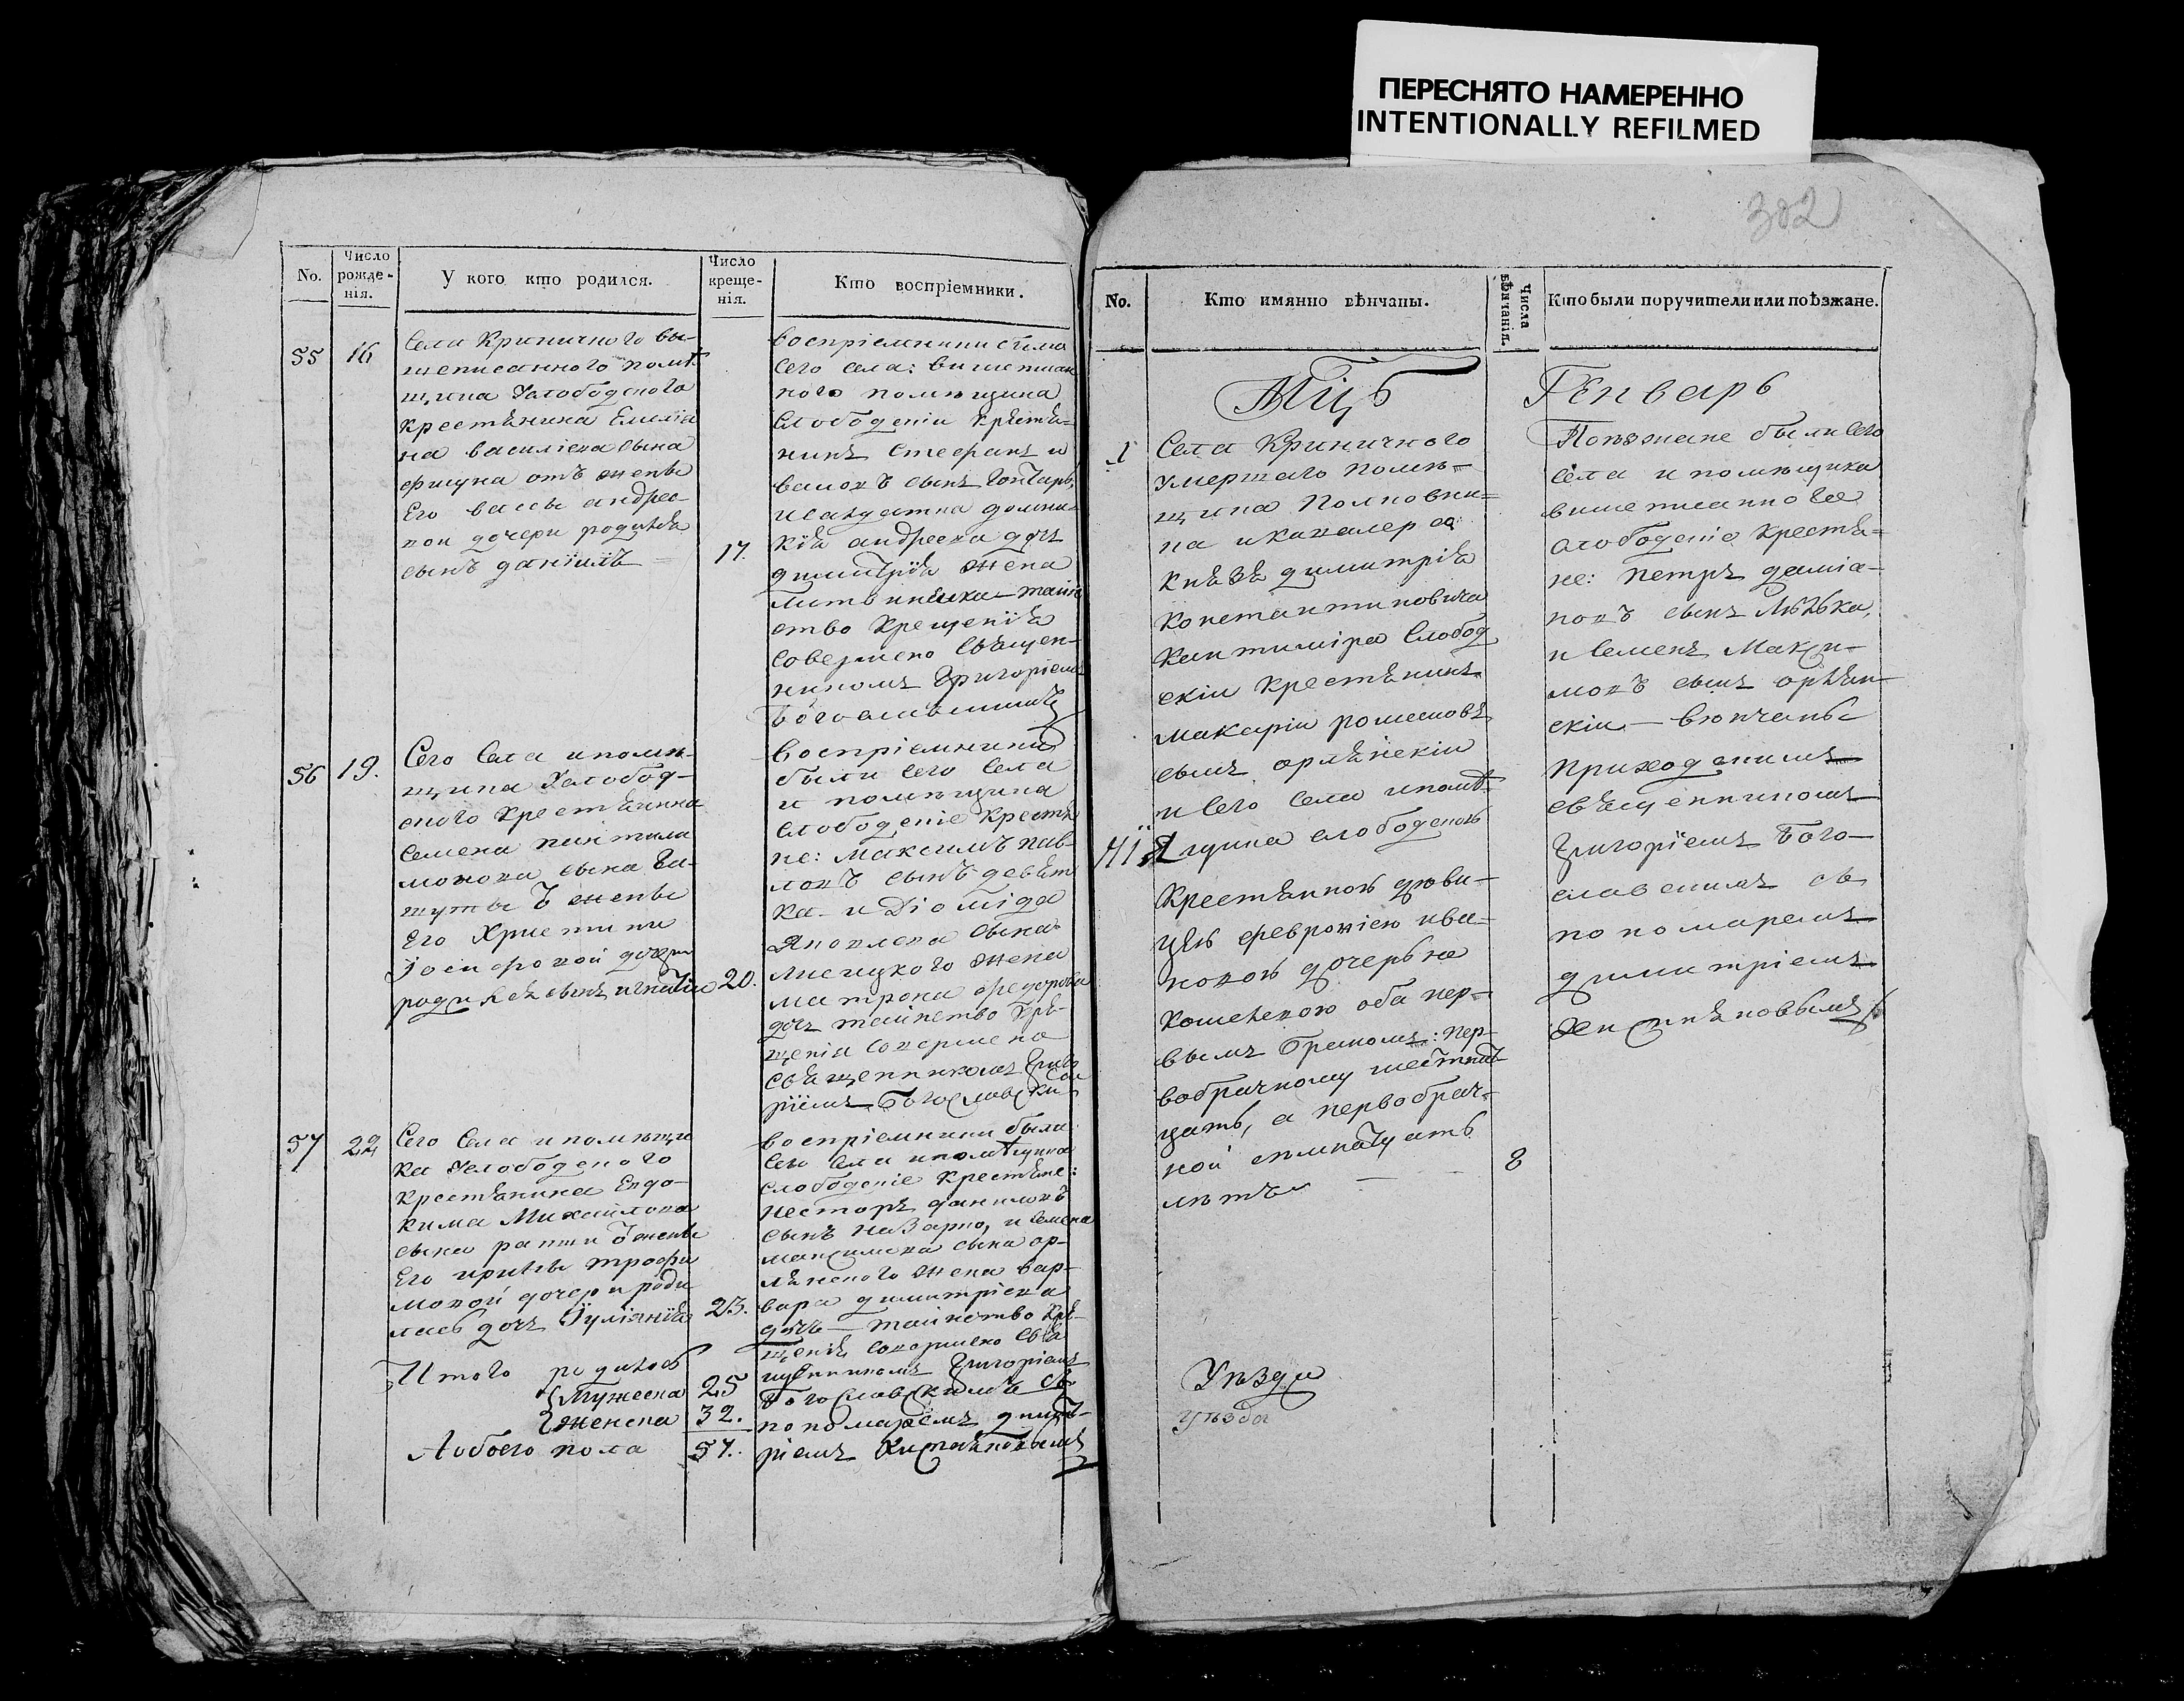 ПЕРЕСНЯТО НАМЕРЕННО
INTENTIONALLY REFILMED
302
No.
Число рожде-нія.
У кого кто родился.
Число креще-нія.
Кто воспріемники.
55
16
Села Криничного вы-
шеписанного помѣ
щика
крестянина Емелія
на василіева сына
фигуна отъ жены
Его вассы андрее-
вои дочери родился
сынъ даніилъ
17.
воспріемники быма
сего села: вишеписан
ного помѣщика
слободскіи крѣстя-
нинъ стефанъ и
вановъ сынъ гончаръ,
андреева дочъ
димитрія жена
таин
ство крещенія
совершено священ-
никомъ григоріемъ
богославскимъ
56
19.
Сего села и помѣ-
щика
ского крестянина
семена
монова сына
жены
его христини
іосифовой дочери
родился сынъ игнатіи
20.
воспріемники
были сего села
и помѣщика
слободскіе крестя
не: максимъ пав-
ловъ сынъ девят
ка и Діомида
яковлева сына
лисицкого жена
матрона федорова
дочъ таинство кре-
щенія совершено
священникомъ григо
ріемъ богославским
57
22
Сего села и помѣщи
ка
крестянина Евдо-
кима Михаилова
сына жены
Его трофи
мовой дочери роди
лась дочъ Іуліанія
23.
воспріемники были
сего села и помѣщика
слободскіе крестяне:
несторъ даниловъ
сынъ назарко, и семена
максимова сына ор-
лянского жена вар-
вара димитріева
дочъ таинство кре-
щенія совершено свя
щенникомъ григоріемъ
богославскимъ съ
пономаремъ димит-
ріемъ
Итого родилось
Мужеска 25
Женска 32.
А обоего пола 57.
No.
Кто имянно вѣнчаны.
Числа вѣнчанія.
Кто были поручители или поѣзжане.
Мцъ
Генварь
1
Села Криничного
умершаго помѣ-
щика полковни-
ка и кавалера
князя димитрія
константиновича
кантиміра слобод
скіи крестянинъ
макаріи романовъ
сынъ орлянскіи
и сего села и помѣ-
щика слободскою
крестянкою дѣви-
цею февроніею ива-
новою дочерью
оба пер-
вымъ бракомъ: пер-
вобрачному шестнат
цать, а первобрач-
ной
лѣтъ
8
Поѣзжане были сего
села и помѣщика
вишеписанного
слободскіе крестя-
не: петръ даміа-
новъ сынъ
и семенъ Макси-
мовъ сынъ орлян-
скіи вѣнчаны
приходскимъ
священникомъ
григоріемъ бого-
славскимъ съ
пономаремъ
димитріемъ
Уѣзда
уѣзда